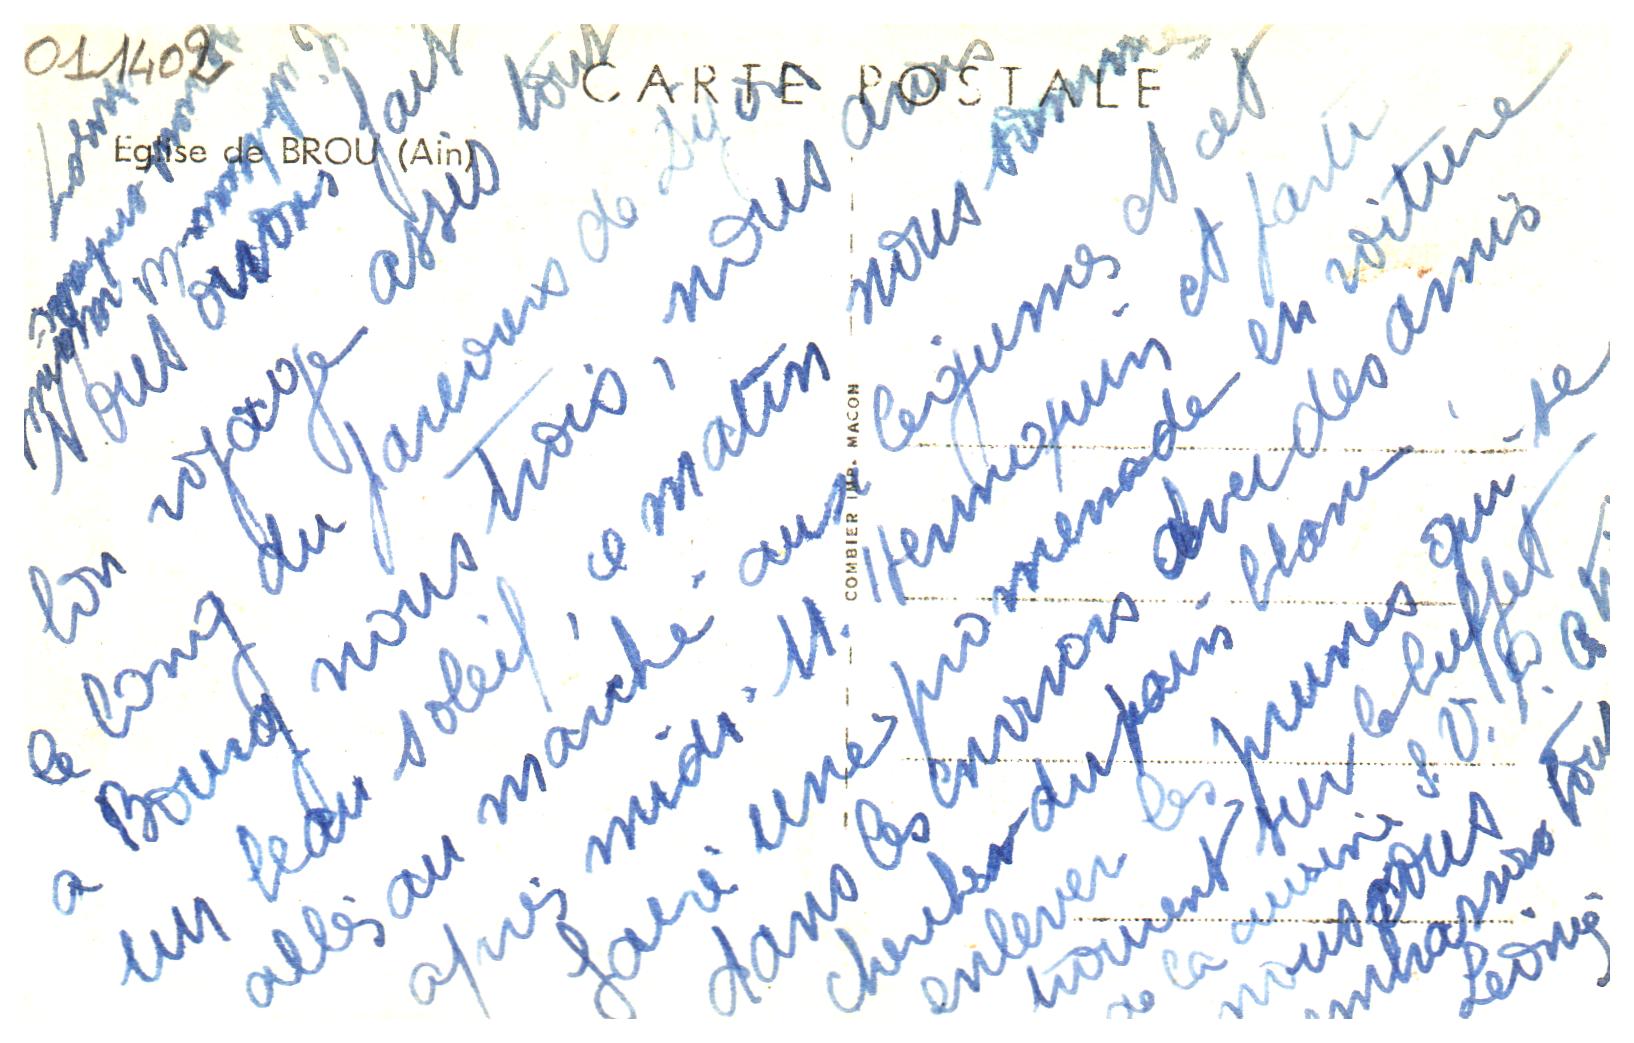 011402
CARTE POSTALE
Eglise de BROU (Ain)
Nous avons fait
bon voyage asses tout
le long du parcours de Lyon
a Bourg nous trois, nous avons
un beau soleil, ce matin nous sommes
allés au marché aux légumes et cet
après midi. M. Hennequin et parti
faire une promenade en voiture
dans les environs avec des amis
chercher du pain blanc,
enlever les prunes qui se
trouvent sur le buffet
de la cuisine S.V.P.
nous vous
embrassons tous
Léonie
COMBIER IMP. MACON